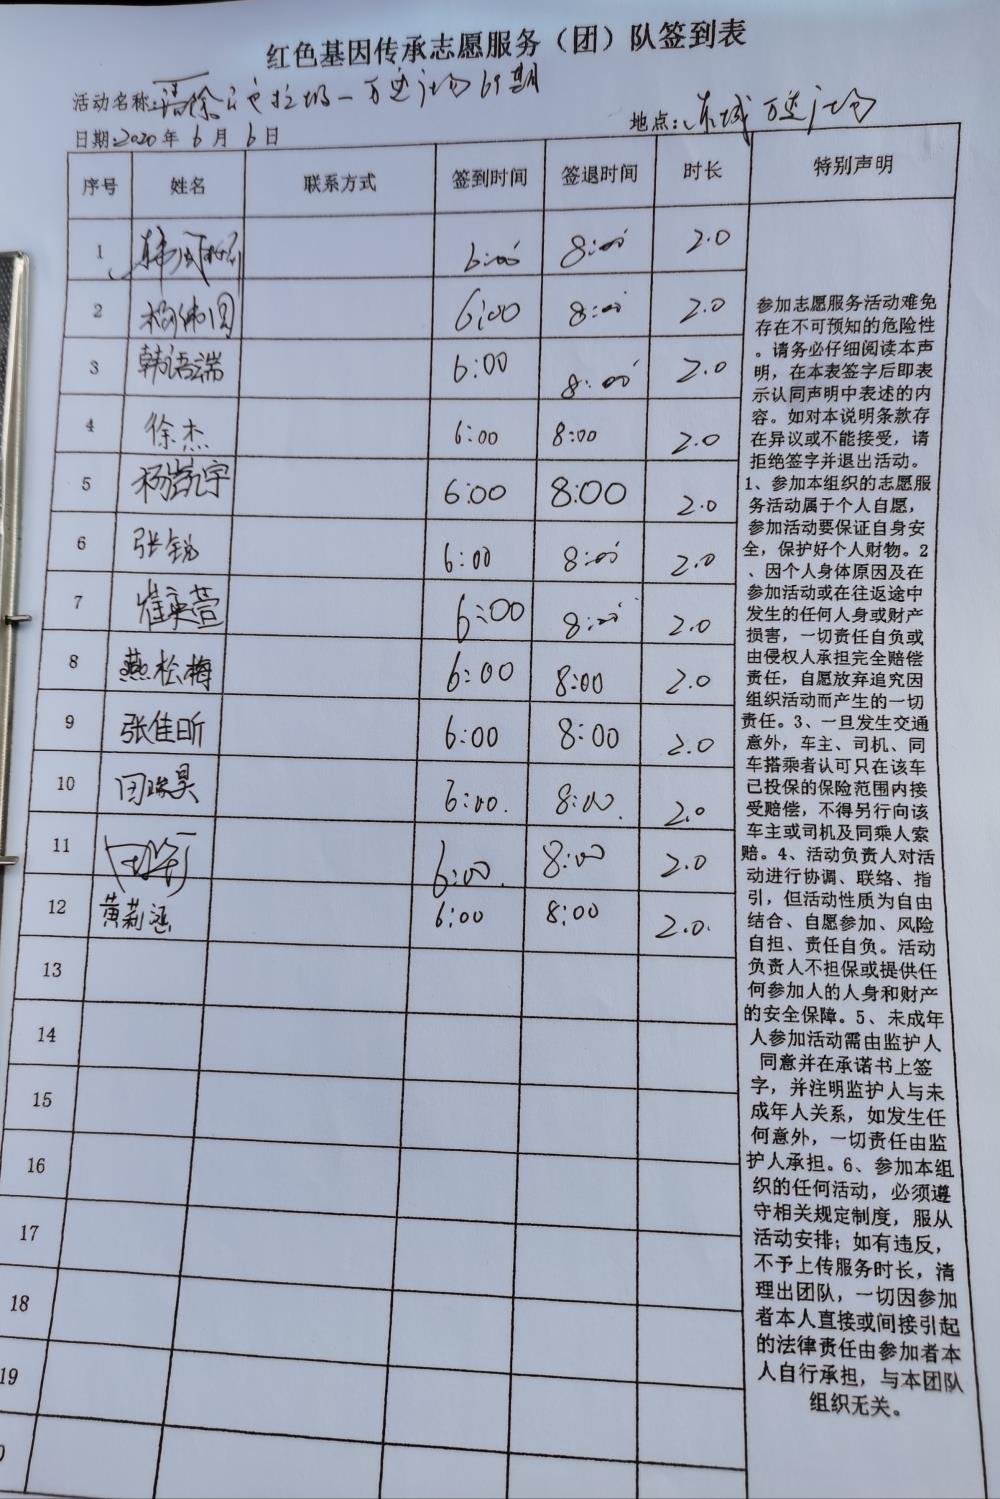 红色基因传承志愿服务（团）队签到表
活动名称:清除白色垃圾—万达广场69期
日期:2020年6月6日 地点:东城万达广场
序号 姓名 联系方式 签到时间 签退时间 时长 特别声明
1 6:00 8:00 2.0
2 6:00 8:00 2.0
3 韩语端 6:00 8:00 2.0
4 徐杰 6:00 8:00 2.0
5 杨凯宇 6:00 8:00 2.0
6 张锐 6:00 8:00 2.0
7 崔英萱 6:00 8:00 2.0
8 燕松梅 6:00 8:00 2.0
9 张佳昕 6:00 8:00 2.0
10 田瑞昊 6:00. 8:00. 2.0
11 6:00. 8:00 2.0
12 黄莉涵 6:00 8:00 2.0.
13
14
15
16
17
18
19
参加志愿服务活动难免
存在不可预知的危险性
。请务必仔细阅读本声
明，在本表签字后即表
示认同声明中表述的内
容。如对本说明条款存
在异议或不能接受，请
拒绝签字并退出活动。
1、参加本组织的志愿服
务活动属于个人自愿，
参加活动要保证自身安
全，保护好个人财物。2
、因个人身体原因及在
参加活动或在往返途中
发生的任何人身或财产
损害，一切责任自负或
由侵权人承担完全赔偿
责任，自愿放弃追究因
组织活动而产生的一切
责任。3、一旦发生交通
意外，车主、司机、同
车搭乘者认可只在该车
已投保的保险范围内接
受赔偿，不得另行向该
车主或司机及同乘人索
赔。4、活动负责人对活
动进行协调、联络、指
引，但活动性质为自由
结合、自愿参加、风险
自担、责任自负。活动
负责人不担保或提供任
何参加人的人身和财产
的安全保障。5、未成年
人参加活动需由监护人
同意并在承诺书上签
字，并注明监护人与未
成年人关系，如发生任
何意外，一切责任由监
护人承担。6、参加本组
织的任何活动，必须遵
守相关规定制度，服从
活动安排；如有违反，
不予上传服务时长，清
理出团队，一切因参加
者本人直接或间接引起
的法律责任由参加者本
人自行承担，与本团队
组织无关。